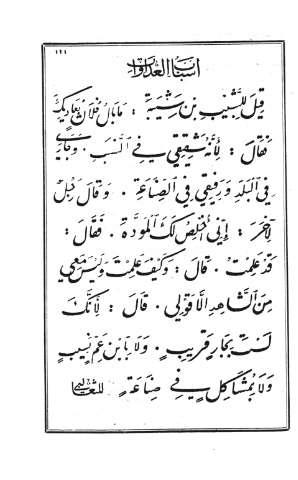 ١٢١
أسباب العداوات
قِيلَ لِلشَّبِيبِ بْنِ شَيْبَةَ : مَا بَالُ فُلَانٍ يُعَادِيكَ
فَقَالَ : لِأَنَّهُ شَقِيقِي فِي النَّسَبِ . وَجَارِي
فِي الْبَلَدِ وَرَفِيقِي فِي الصِّنَاعَةِ . وَقَالَ رَجُلٌ
لِآخَرَ : إِنِّي أُخْلِصُ لَكَ الْمَوَدَّةَ . فَقَالَ :
قَدْ عَلِمْتُ . قَالَ : وَكَيْفَ عَلِمْتَ وَلَيْسَ مَعِي
مِنَ الشَّاهِدِ إِلَّا قَوْلِي . قَالَ : لِأَنَّكَ
لَسْتَ بِجَارٍ قَرِيبٍ . وَلَا بِابْنِ عَمٍّ نَسِيبٍ
وَلَا بِمُشَاكِلٍ فِي صِنَاعَةٍ للثعالبي